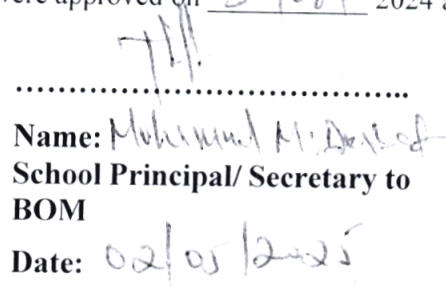 were approved on 2024
Name: M.
School Principal/ Secretary to
BOM
Date: 02/05/2025